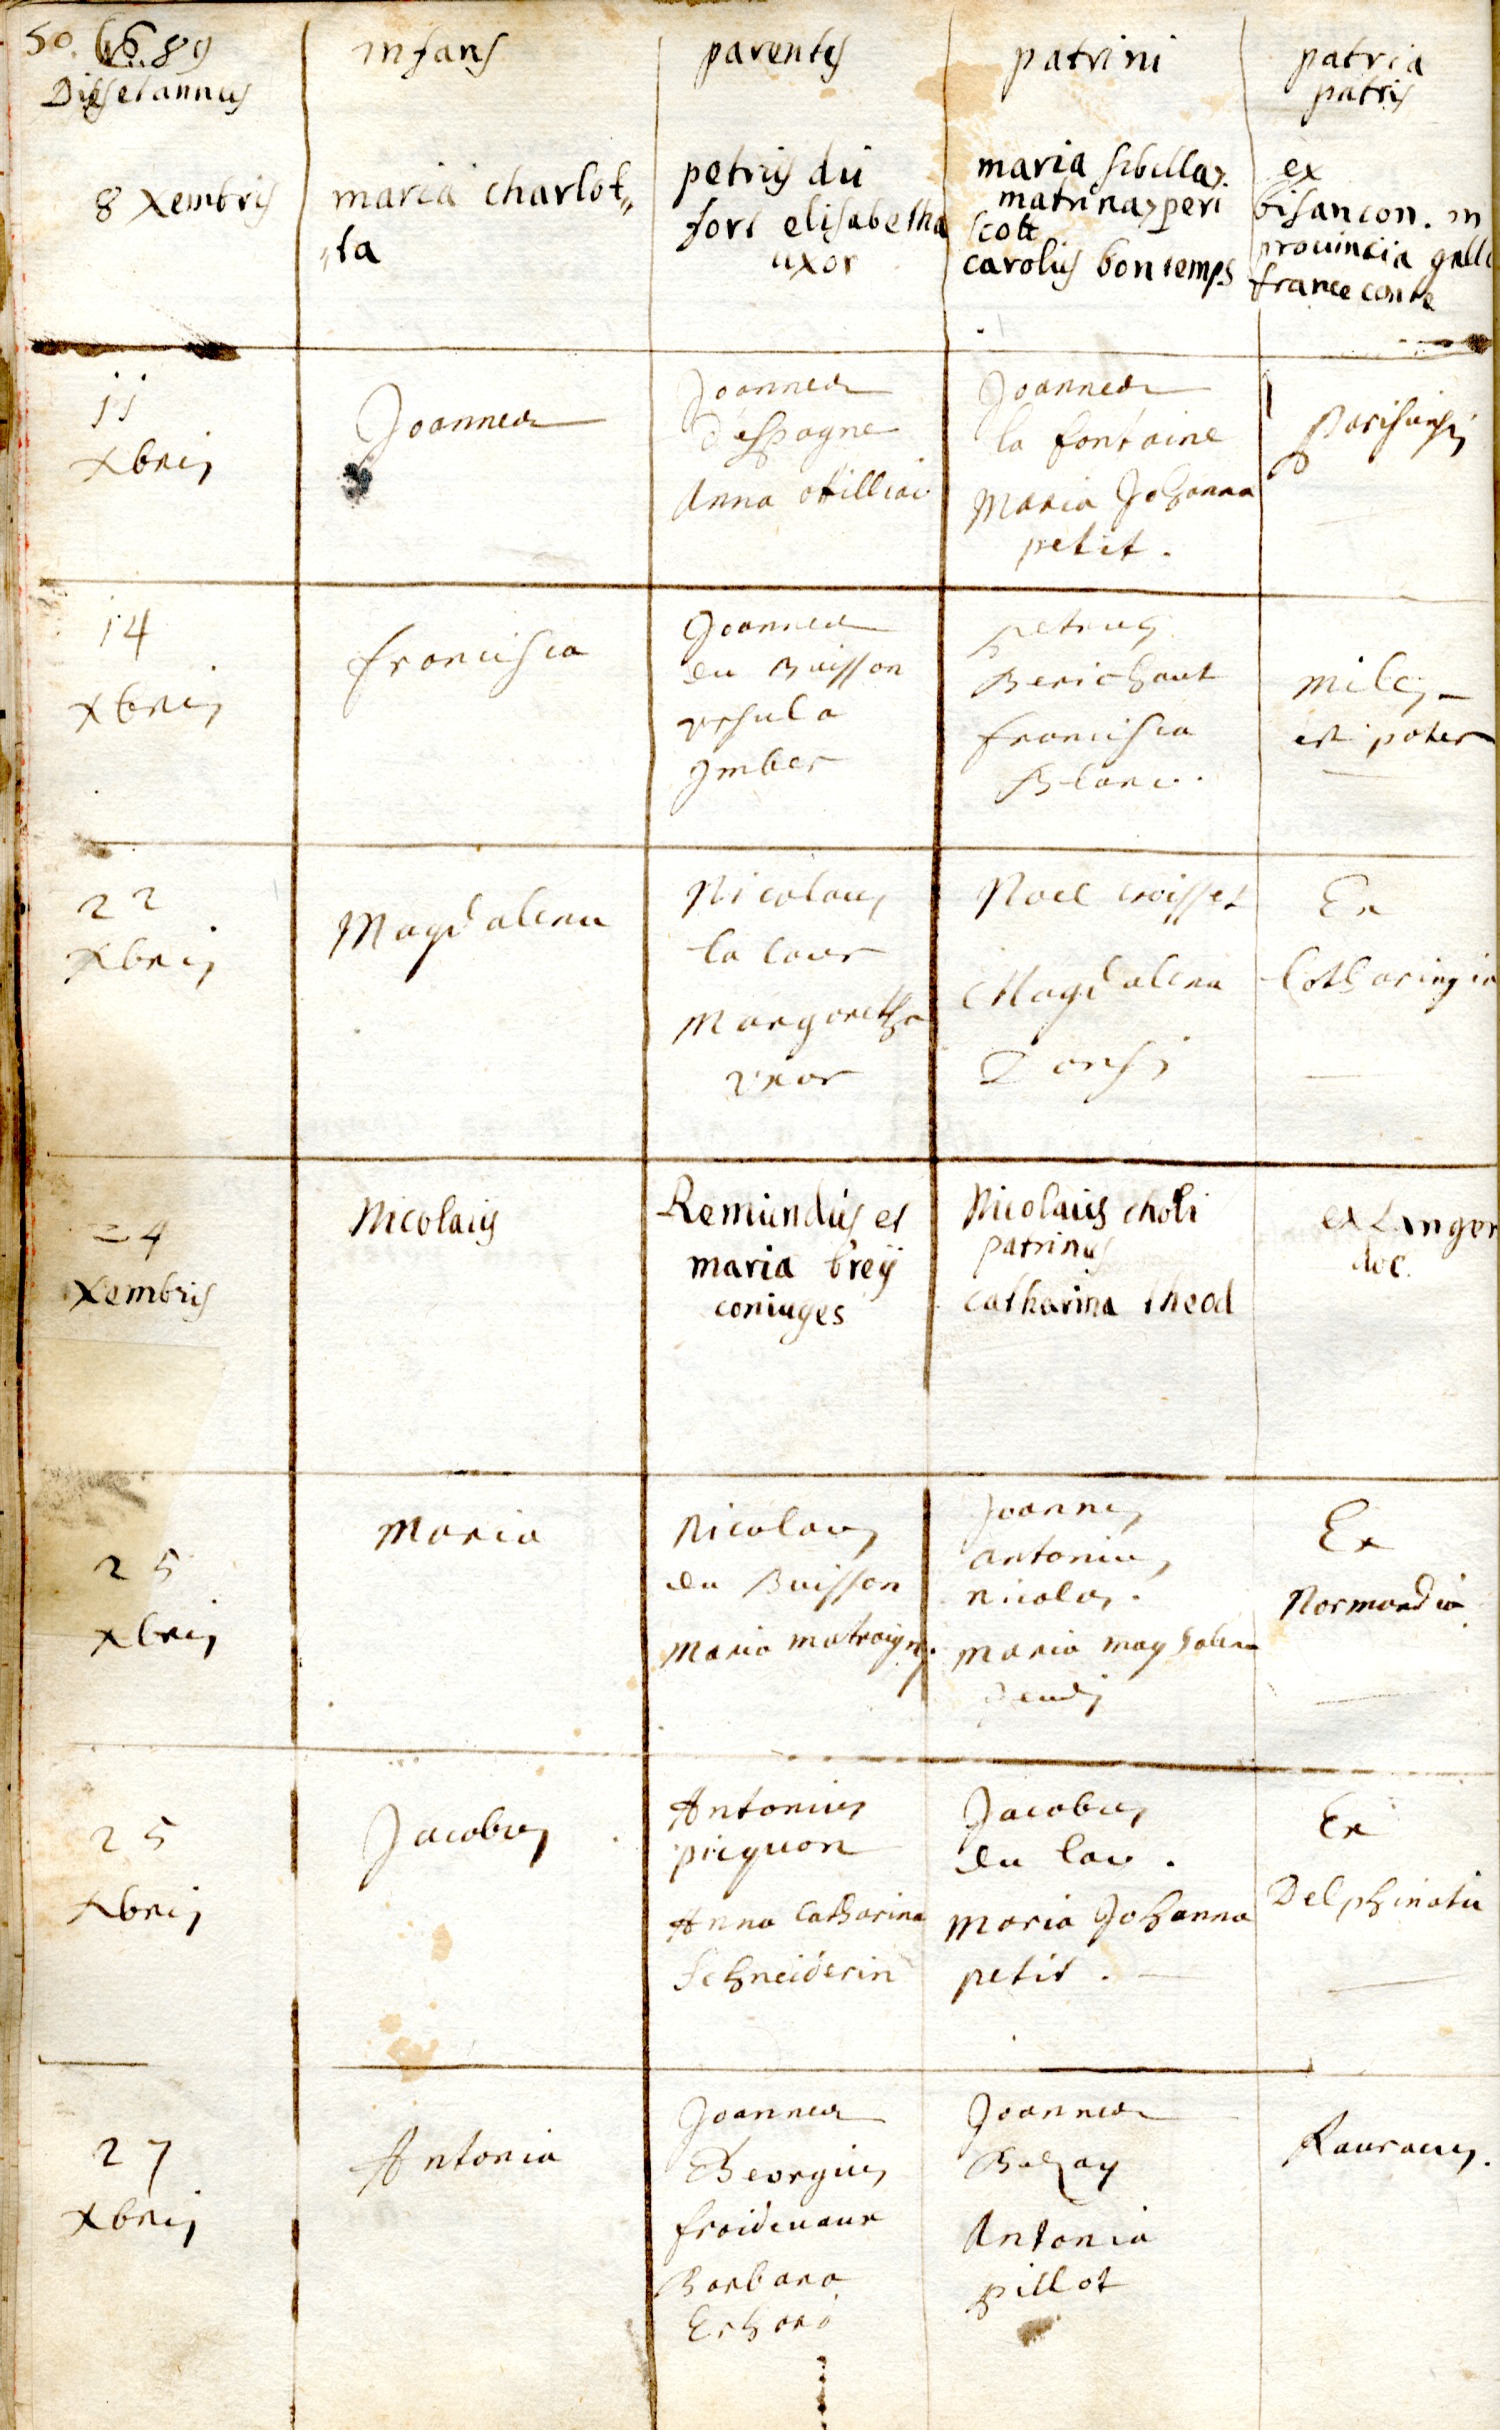 50. 1689
Dies et annus
infans
parentes
patrini
patria
patris
8 Xembris
maria charlot„
„ta
petrus du
fort elisabetha
uxor
maria sibilla
matrina peri
scott
carolus bontemps
ex
bisancon. in
prouincia gall
france conte
11
xbris
Joannes
Joannes
d'espagne
Anna ottilliai
Joannes
la fontaine
Maria Johanna
petit.
Parisiensis
14
xbris
francisca
Joannes
du Buisson
vrsula
Jmber
petrus
Berichaut
francisca
Blanc.
miles
est pater
22
Xbris
Magdalena
Nicolaus
la cour
Margaretha
vxor
Noel croisset
Magdalena
Ex
Lotharingia
24
Xembris
Nicolaus
Remundus et
maria breÿ
coniuges
Nicolaus choli
patrinus
catharina theod
ex Langer
doc.
25
xbris
Maria
Nicolaus
du Buisson
Maria matraigne.
Joannes
antonius
nicolas.
Maria magdalena
Ex
Normandia
25
Xbris
Jacobus
Antonius
picquon
Anna Catharina
Schneiderin
Jacobus
du lac.
Maria Johanna
petit.
Ex
Delphinatu
27
Xbris
Antonia
Joannes
Georgius
froideuaux
Barbara
Erhard
Joannes
Balzay
Antonia
pillot
Rauracus.